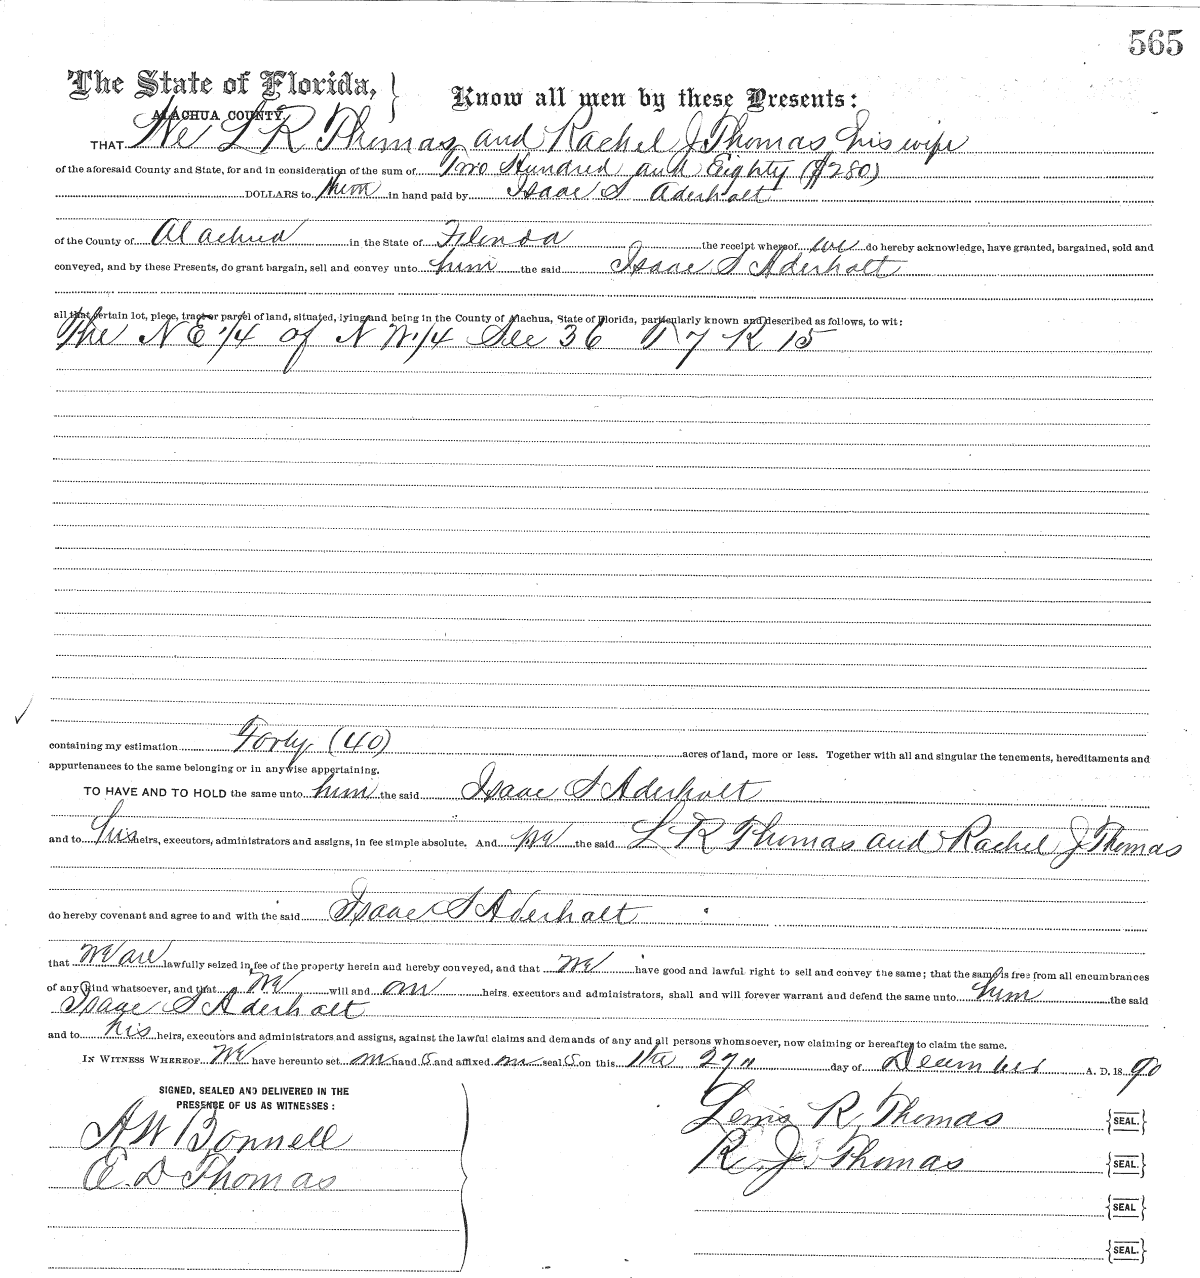 565
The State of Florida,
ALACHUA COUNTY.
Know all men by these Presents:
THAT We L R Thomas and Rachel J Thomas his wife
of the aforesaid County and State, for and in consideration of the sum of Two Hundred and Eighty ($280)
DOLLARS to them in hand paid by Isaac S Aderholt
of the County of Alachua in the State of Florida the receipt whereof we do hereby acknowledge, have granted, bargained, sold and
conveyed, and by these Presents, do grant bargain, sell and convey unto him the said Isaac S Aderholt
all that certain lot, piece, tract or parcel of land, situated, lying and being in the County of Alachua, State of Florida, particularly known and described as follows, to wit:
The N E 1/4 of N W 1/4 Sec 36 T 7 R 15
containing my estimation Forty (40) acres of land, more or less. Together with all and singular the tenements, hereditaments and
appurtenances to the same belonging or in anywise appertaining.
TO HAVE AND TO HOLD the same unto him the said Isaac S Aderholt
and to his heirs, executors, administrators and assigns, in fee simple absolute. And we the said L R Thomas and Rachel J Thomas
do hereby covenant and agree to and with the said Isaac S Aderholt
that we are lawfully seized in fee of the property herein and hereby conveyed, and that we have good and lawful right to sell and convey the same; that the same is free from all encumbrances
of any kind whatsoever, and that we will and our heirs, executors and administrators, shall and will forever warrant and defend the same unto him the said
Isaac S Aderholt
and to his heirs, executors and administrators and assigns, against the lawful claims and demands of any and all persons whomsoever, now claiming or hereafter to claim the same.
IN WITNESS WHEREOF We have hereunto set our hand s and affixed our seal s on this the 27" day of December A. D. 18 90
SIGNED, SEALED AND DELIVERED IN THE
PRESENCE OF US AS WITNESSES:
A W Bonnell
E. D Thomas
Lewis R Thomas {SEAL.}
R. J. Thomas {SEAL.}
{SEAL}
{SEAL.}